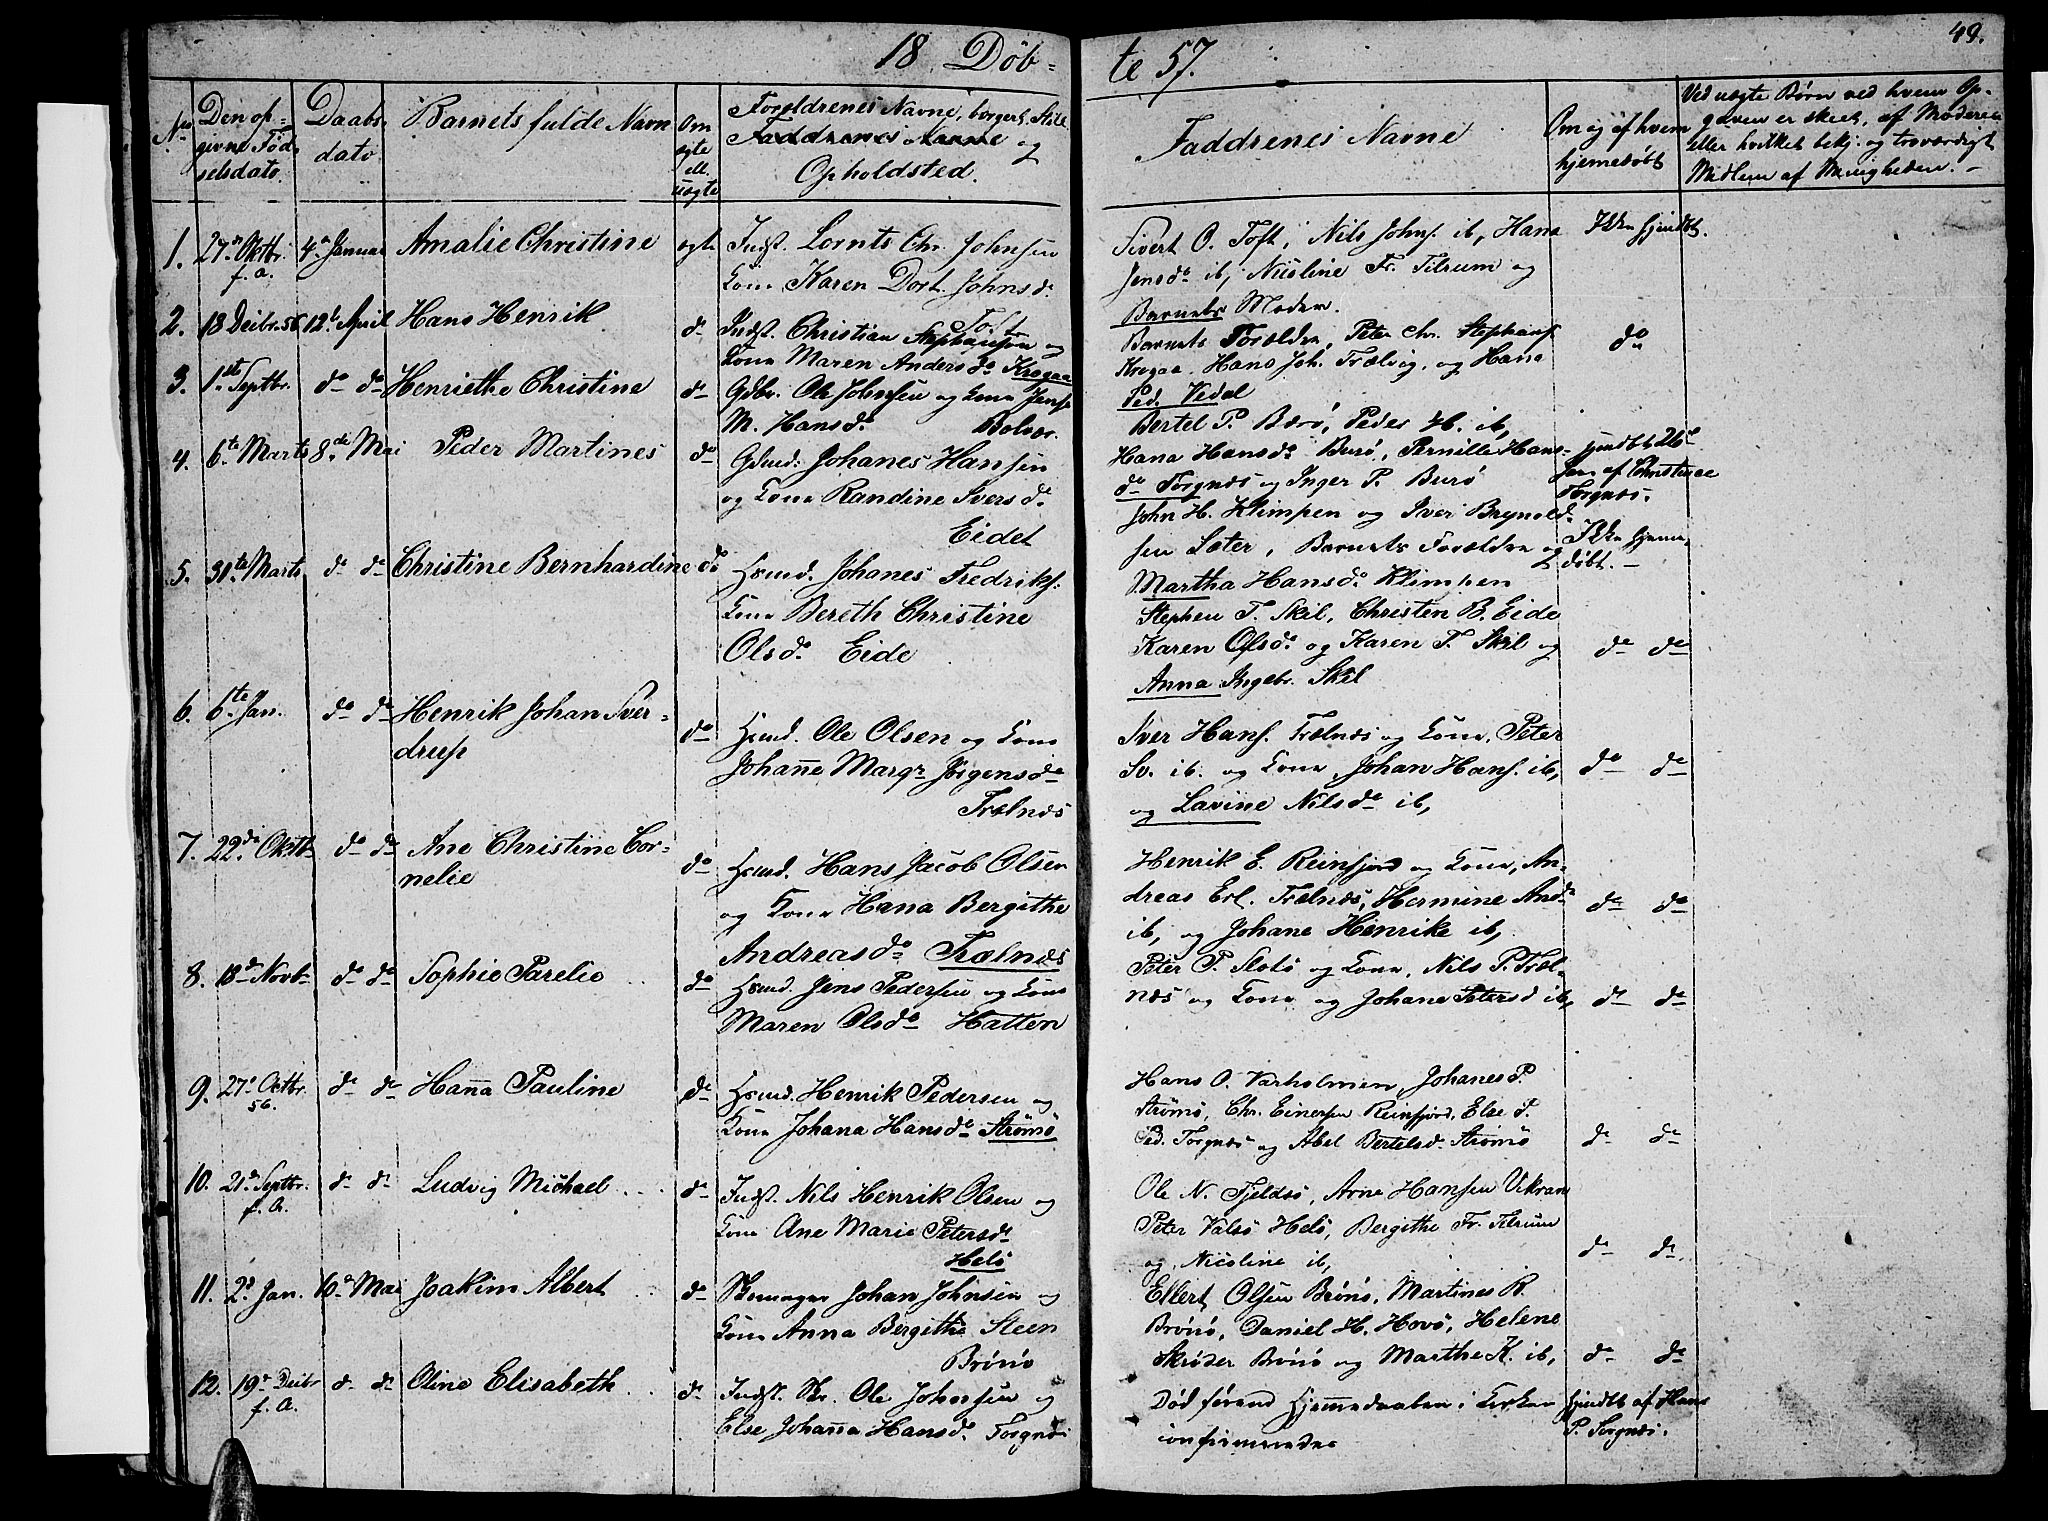 18 Døb-
te 57.
49.
No
Den op-
givne Fød-
selsdato.
Daabs-
dato
Barnets fulde Navn
Om
ægte
ell.
uægte
Forældrenes Navne, borgerl. Still.
Faddrenes Navne og
Opholdsted.
Faddrenes Navne
Om og af hvem
hjemedøbt
Ved uægte Børn ved hvem Op-
gaven er skeet, af Moderen
eller hvilket bekj. og troværdigt
Medlem af Menigheden.
1. 27de Oktbr. f. a. 4de Januar Amalie Christine ægte Indst. Lornts Chr. Johnsen
Kone Karen Dort. Johnsdr.
Toft
Sivert O. Toft, Nils Johns. ib, Hana
Jensdr ib, Fr. Tilrum og
Barnets Moder.
Ikke hjmdbt.
2. 18 Decbr. 56 12te April Hans Henrik do Indst. Christian Stephansen og
Kone Maren Andersdr Krogaa
Barnets Forældre, Peter Chr. Stephans.
Krogaa, Hans Joh. Trælvig, og Hana
Ped. Vedel
do
3. 1st Septbr. do do Henriethe Christine do Gdbr. Ole Johnsen og Kone Jense
M. Hansdr Bolvær.
Bertel P. Bærø, Peder H. ib,
Hana Hansdr Burø, Pernille Hans-
dr Torgnæs og Inger P. Burø
hjmdbt 26de
Jan af Christine
Torgnæs.
4. 6te Marts 8de Mai Peder Martines do Gdmd. Johanes Hansen
og Kone Randine Iversdr
Eidet
John H. Klimpen og Iver Brynild-
sen Sæter, Barnets Forældre og
Martha Hansdr Klimpen
Ikke hjeme-
døbt.
5. 31te Marts do do Christine Bernhardine do Hsmd. Johanes Fredriks.
Kone Bereth Christine
Olsdr Eide
Stephen T. Skil, Christen B. Eide
Karen Olsdr og Karen T. Skil og
Anna Ingebr. Skil
do do
6. 6te Jan. do do Henrik Johan Sver-
drup
do Hsmd. Ole Olsen og Kone
Johanne Margr Jørgensdr
Trælnæs
Iver Hans. Trælnæs og Kone, Peter
Iv. ib. og Kone, Johan Hans. ib,
og Lavine Nilsdr ib,
do do
7. 22de Oktb do do Ane Christine Cor-
nelie
do Hsmd. Hans Jacob Olsen
og Kone Hana Bergithe
Andreasdr Trælnæs
Henrik E. Reinfjord og Kone, An-
dreas Erl. Trælnæs, Hermine Anddr
ib, og Johane Henrike ib,
do do
8. 18de Novb do do Sophie Parelie do Hsmd. Jens Pedersen og Kone
Maren Olsdr Hatten
Peter P. Slotø og Kone, Nils P. Træl-
næs og Kone og Johane Petersd ib,
do do
9. 27de Octbr. 56. do do Hanna Pauline do Hsmd. Henrik Pedersen og
Kone Johana Hansdr Strømø
Hans O. Varholmen, Johanes P.
Strømø, Chr. Einersen Reinfjord, Else P.
Ped. Torgnæs og Abel Bertelsdr Strømø
do do
10. 21de Septbr. f. A. do do Ludvig Michael do Indst. Nils Henrik Olsen og
Kone Ane Marie Petersdr
Helø
Ole N. Fjeldsø, Arne Hansen Vikran
Peter Valsø Helø, Bergithe Fr. Tilrum
og Nicoline ib,
do do
11. 2d Jan. 10de Mai Joakim Albert do Skomager Johan Johnsen og
Kone Anna Bergithe Steen
Brønø
Ellert Olsen Brønø, Martines R.
Brønø, Daniel H. Hovø, Helene
Skrøder Brønø og Marthe K. ib,
do do
12. 19de Decbr f. A. do do Oline Elisabeth do Indst. Skr. Ole Johnsen og
Else Johanna Hansdr. Torgnæs
Død førend Hjemmedaaben i Kirken
confirmeredes
hjmdbt af Hans
P. Torgnæs.